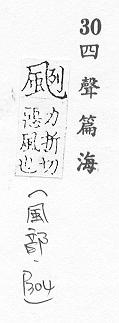 30 四聲篇海
颲
力折切
惡風也
(風部.B04)